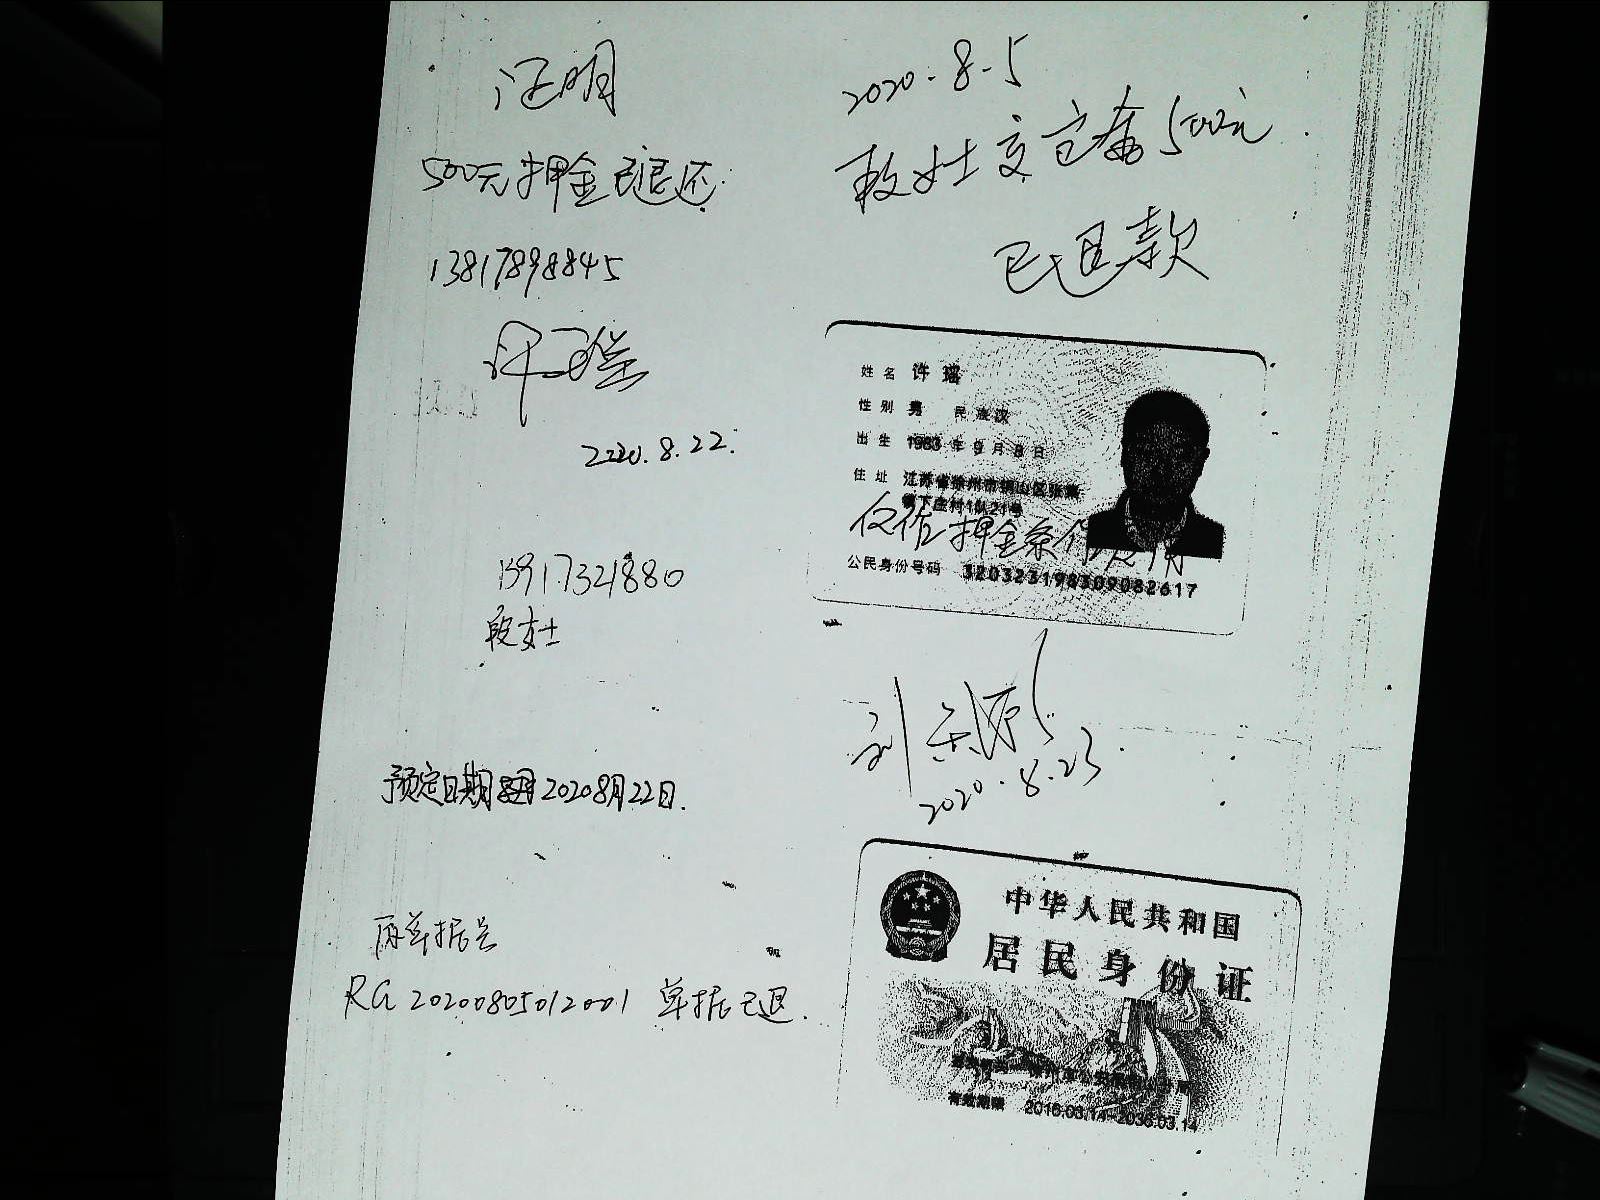 证明
500元押金已退还.
13817898845
许瑶
2020.8.22.
13917321880
段女士
预定日期 2020 8月22日.
原单据号
RG 20200805012001 单据已退.
2020.8.5
段女士交定金500元
已退款
姓名 许瑶
性别 男 民族 汉
出生 1983 年 9 月 8 日
住址 江苏省徐州市铜山区张集
镇下庄村1队21号
仅作押金条
公民身份号码 320323198309082617
2020.8.23
中华人民共和国
居民身份证
有效期限 2016.03.14-2036.03.14